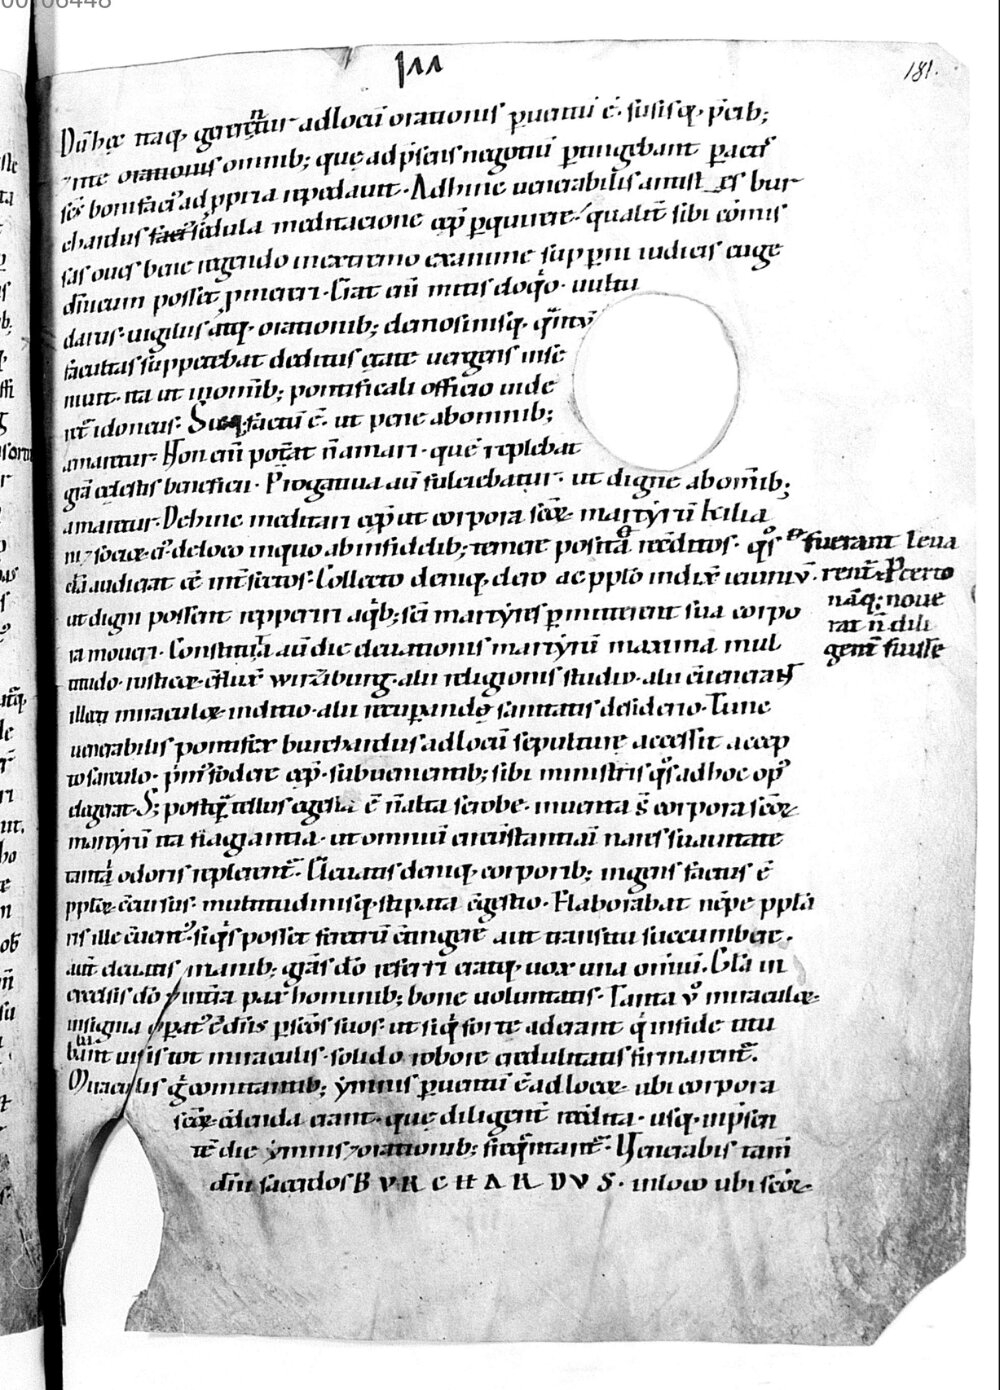 181.
Dū hęc itaq; gererent̄ur ad locū orationis ꝑuentū ē. fusisq; p̄cib;
ante orationis omnib; quę ad p̄sens negotiū ꝑtingebant ꝑactis
sc̄s bonifaci' ad ppria repedauit. Adhinc uenerabilis antistes bur
chardus sedula meditacione cep̄ ꝑquirere qualit̄ sibi cōmis
sas oues bene regendo in extremo examine supni iudicis euge
diuinum posset ꝓmereri. Erat eni mitis uultu
facultas suppetebat deditus ętate uergens in se
nium. ita ut in omib; pontificali officio uide
ret̄ idoneus. factū ē. ut pene ab omnib;
amaretur. Non eni poterat n̄ amari. quē replebat
grā cęlestis beneficii. Prerogatiua aū fulciebatur. ut digne ab omib;
amaretur. Dehinc meditari cep̄ ut corpora scōꝝ martyrū kilia
ni ⁊ socioꝝ ei' de loco in quo ab infidelib; temere posita reconditos. q°s
fuerant leua
rent̄. P certo
nāq; noue
rat n̄ dili
gent̄ fuisse
dā audierat ēē int̄fectos. Collecto deniq; clero ac pplo indix̄ ieiuniū.
ut digni possent repperiri aqb; sc̄i martyres ꝑmitterent sua corpo
ra moueri. Constituta aū die eleuationis martyrū maxima mul
titudo. rusticoꝝ cōflux̄ wirziburg. alii religionis studio. alii
illecti miraculoꝝ inditio. alii recuꝑandę sanitatis desiderio. Tunc
uenerabilis pontifex burchardus ad locū sepulturę accessit accep
to sarculo. prim' fodere cep̄. subuenientib; sibi ministris q°s ad hoc op'
elegerat. S; postq̄ tellus egesta ē n̄ alta scrobe. inuenta s̄ corpora scōꝝ
martyrū ita flagrantia. ut omniū circūstantiū nares suauitate
tanti odoris replerent̄. Eleuatis deniq; corporib; ingens factus ē
pploꝝ cōcursus. multitudinisq; stipata cōgestio. Elaborabat nēpe ppla
ris ille cūent'. siq's posset feretrū cōtingere aut transitu succumbere.
aut eleuatis manib; grās dō referri eratq; uox una omiū. Glā in
excelsis dō ⁊ in terra pax hominib; bone uoluntatis. Tanta v° miraculoꝝ
insignia oꝑat' ē dn̄s ꝑ scōs suos. ut siq' forte aderant q' in fide titu
babant uisis tot miraculis. solido robore credulitatis firmarent̄.
Miraculis g° comitantib; ymnis ꝑuentū ē ad locū. ubi corpora
scōꝝ cōdenda erant. quę diligent̄ recōdita. usq; in p̄sen
tē die ymnis ⁊ orationib; frequentant̄. Venerabis tam
diu sacerdos BVRCHARDVS. in loco ubi scōꝝ